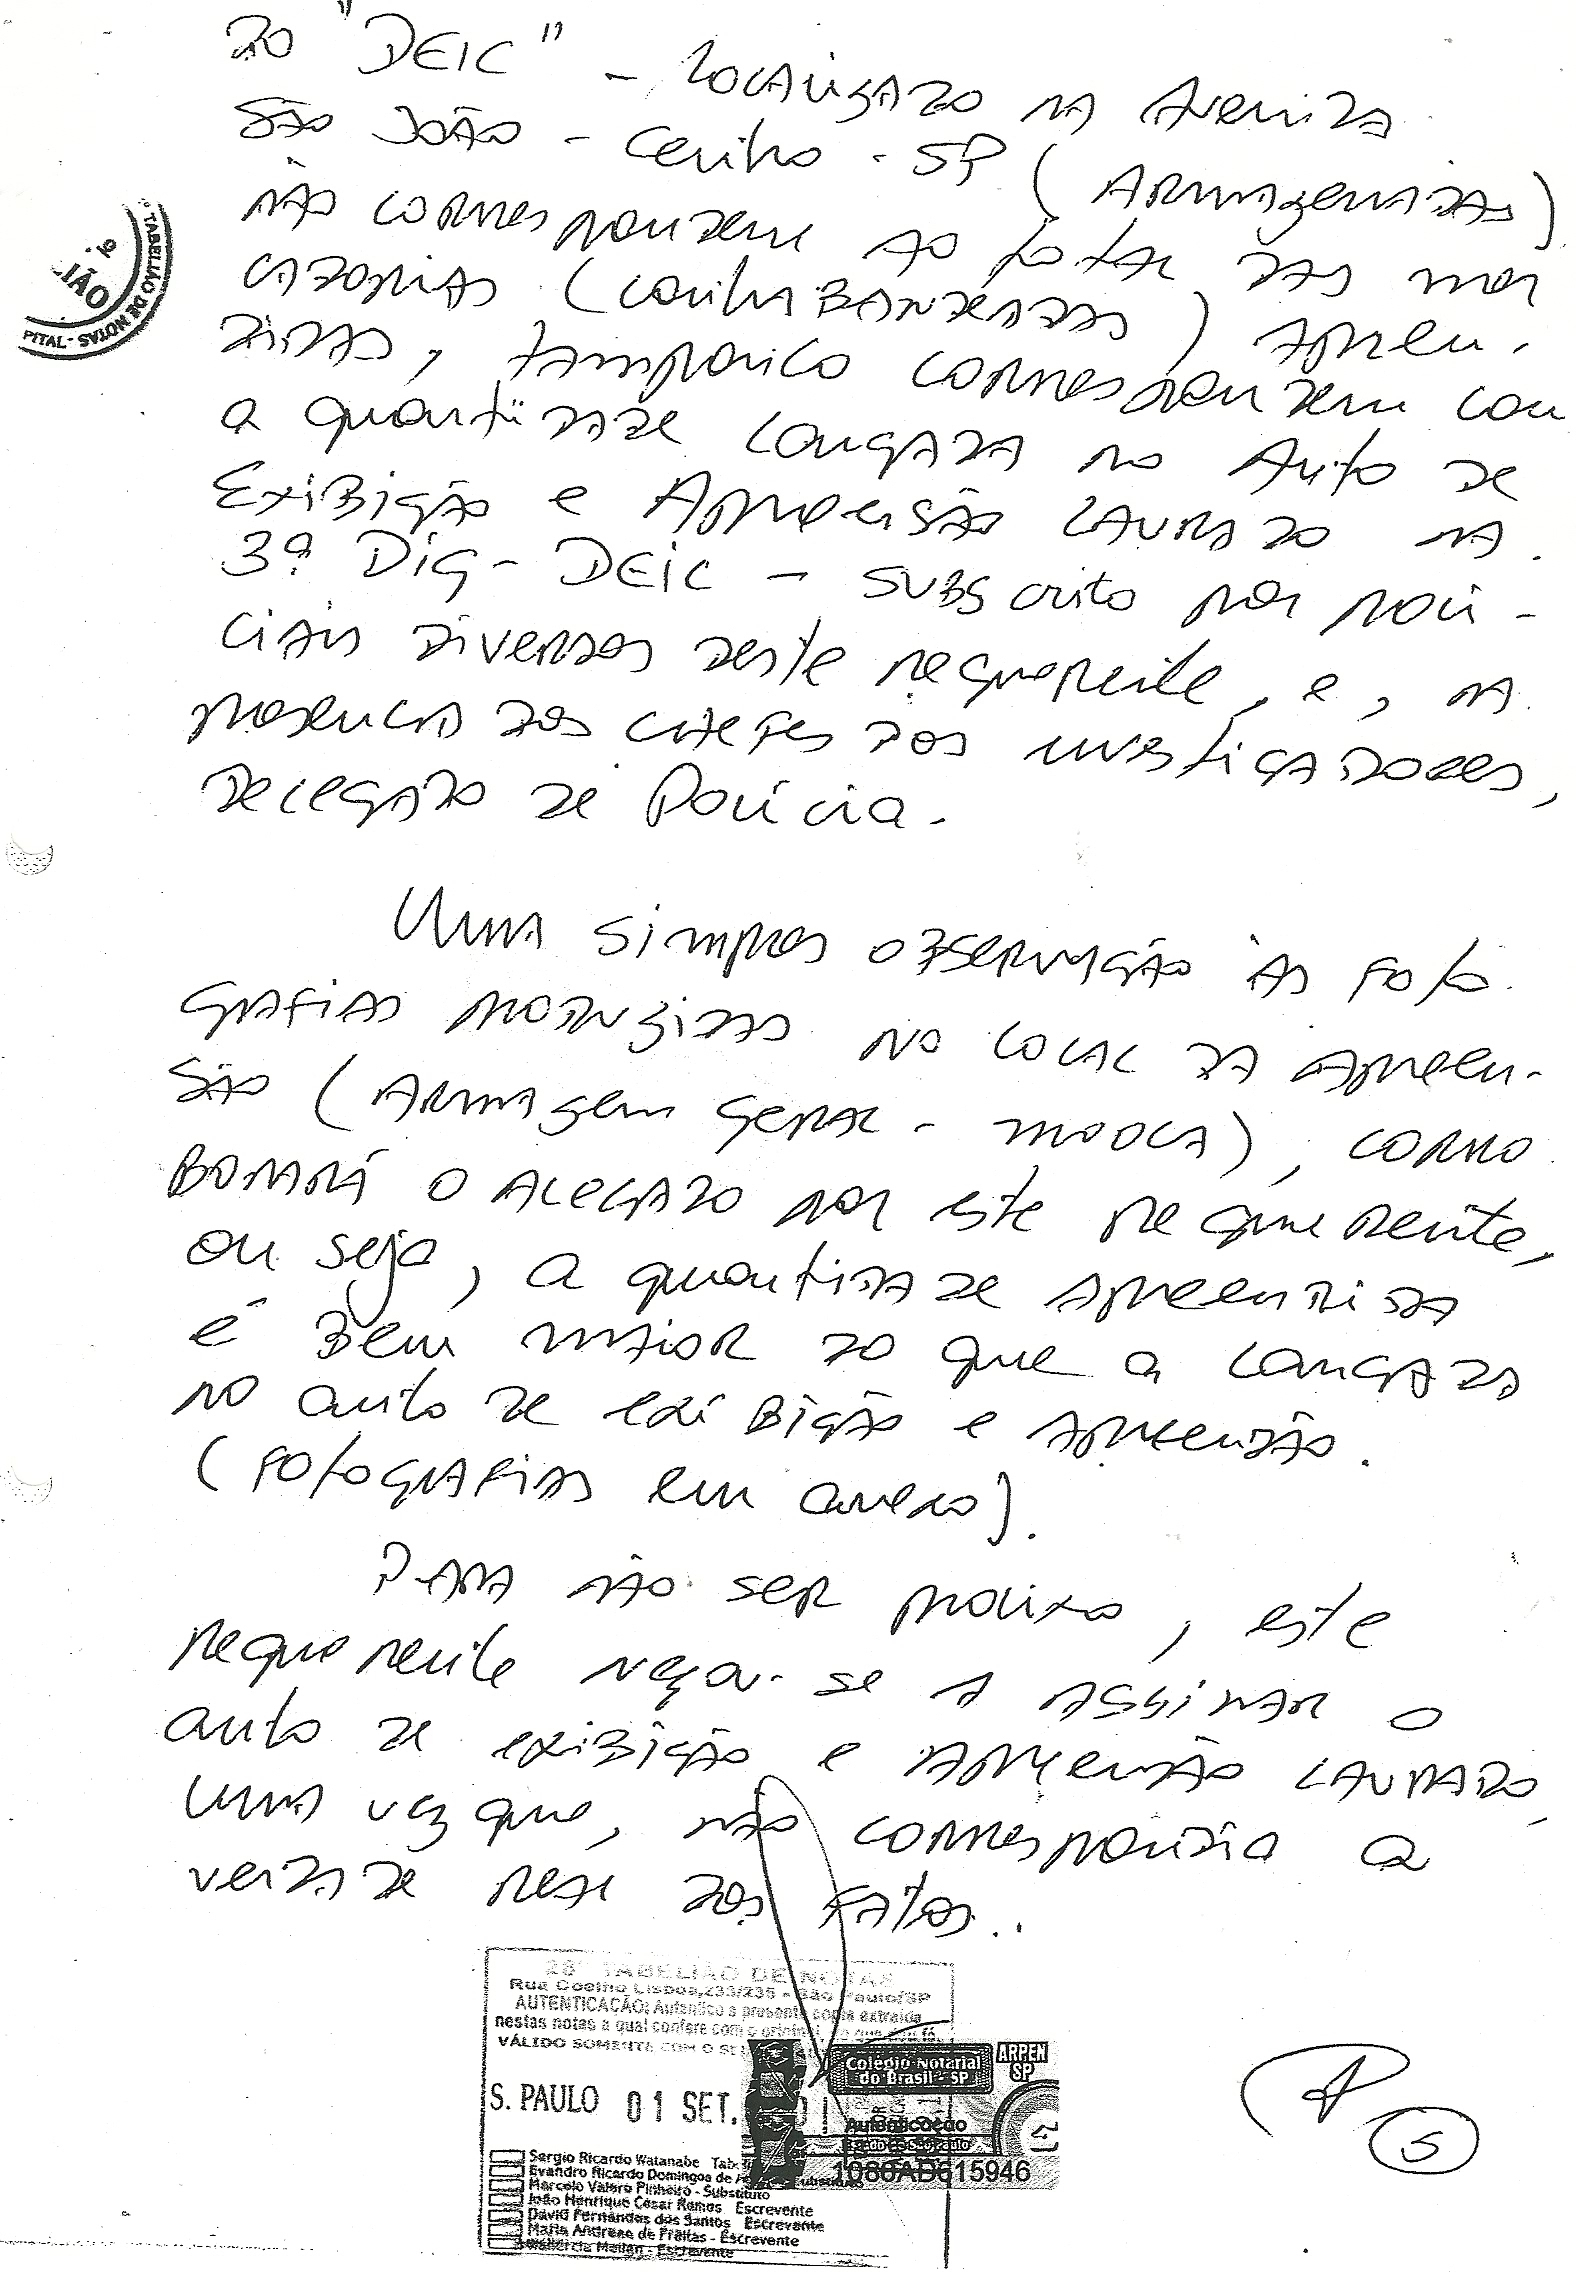 do "DEIC" - localizado na Avenida
São João - Centro - SP (Armazenadas)
não correspondem ao total das mer
cadorias (contrabandeadas) apreen-
didas, tampouco correspondem com
a quantidade lançada no Auto de
Exibição e Apreensão lavrado na
3ª DIG - DEIC - subscrito por poli-
ciais diversos deste requerente, e, na
presença dos chefes dos investigadores,
Delegado de Polícia.
Uma simples observação às foto
grafias produzidas no local da apreen-
são (Armagem Geral - Mooca), corro
borará o alegado por este requerente,
ou seja, a quantidade apreendida
é bem maior do que a lançada
no auto de exibição e apreensão.
(fotografias em anexo).
Para não ser prolixo, este
requerente negou-se a assinar o
auto de exibição e apreensão lavrado,
uma vez que, não correspondia a
verdade real dos fatos..
TABELIÃO DE NOTAS
IÃO
PITAL -
28º TABELIÃO DE NOTAS
Rua Coelho Lisboa, 233/235 - São Paulo/SP
AUTENTICAÇÃO: Autentico a presente cópia extraída
nestas notas a qual confere com o original, do que dou fé.
VÁLIDO SOMENTE COM O SE
S. PAULO 01 SET.
Colégio Notarial
do Brasil - SP
ARPEN
SP
Autenticação
1080AD615946
Sergio Ricardo Watanabe Tab
Evandro Ricardo Domingos de
Marcelo Valero Pinheiro - Substituto
João Henrique Cesar Ramos Escrevente
David Fernandes dos Santos Escrevente
Maria Andreae de Freitas - Escrevente
Meilan - Escrevente
5